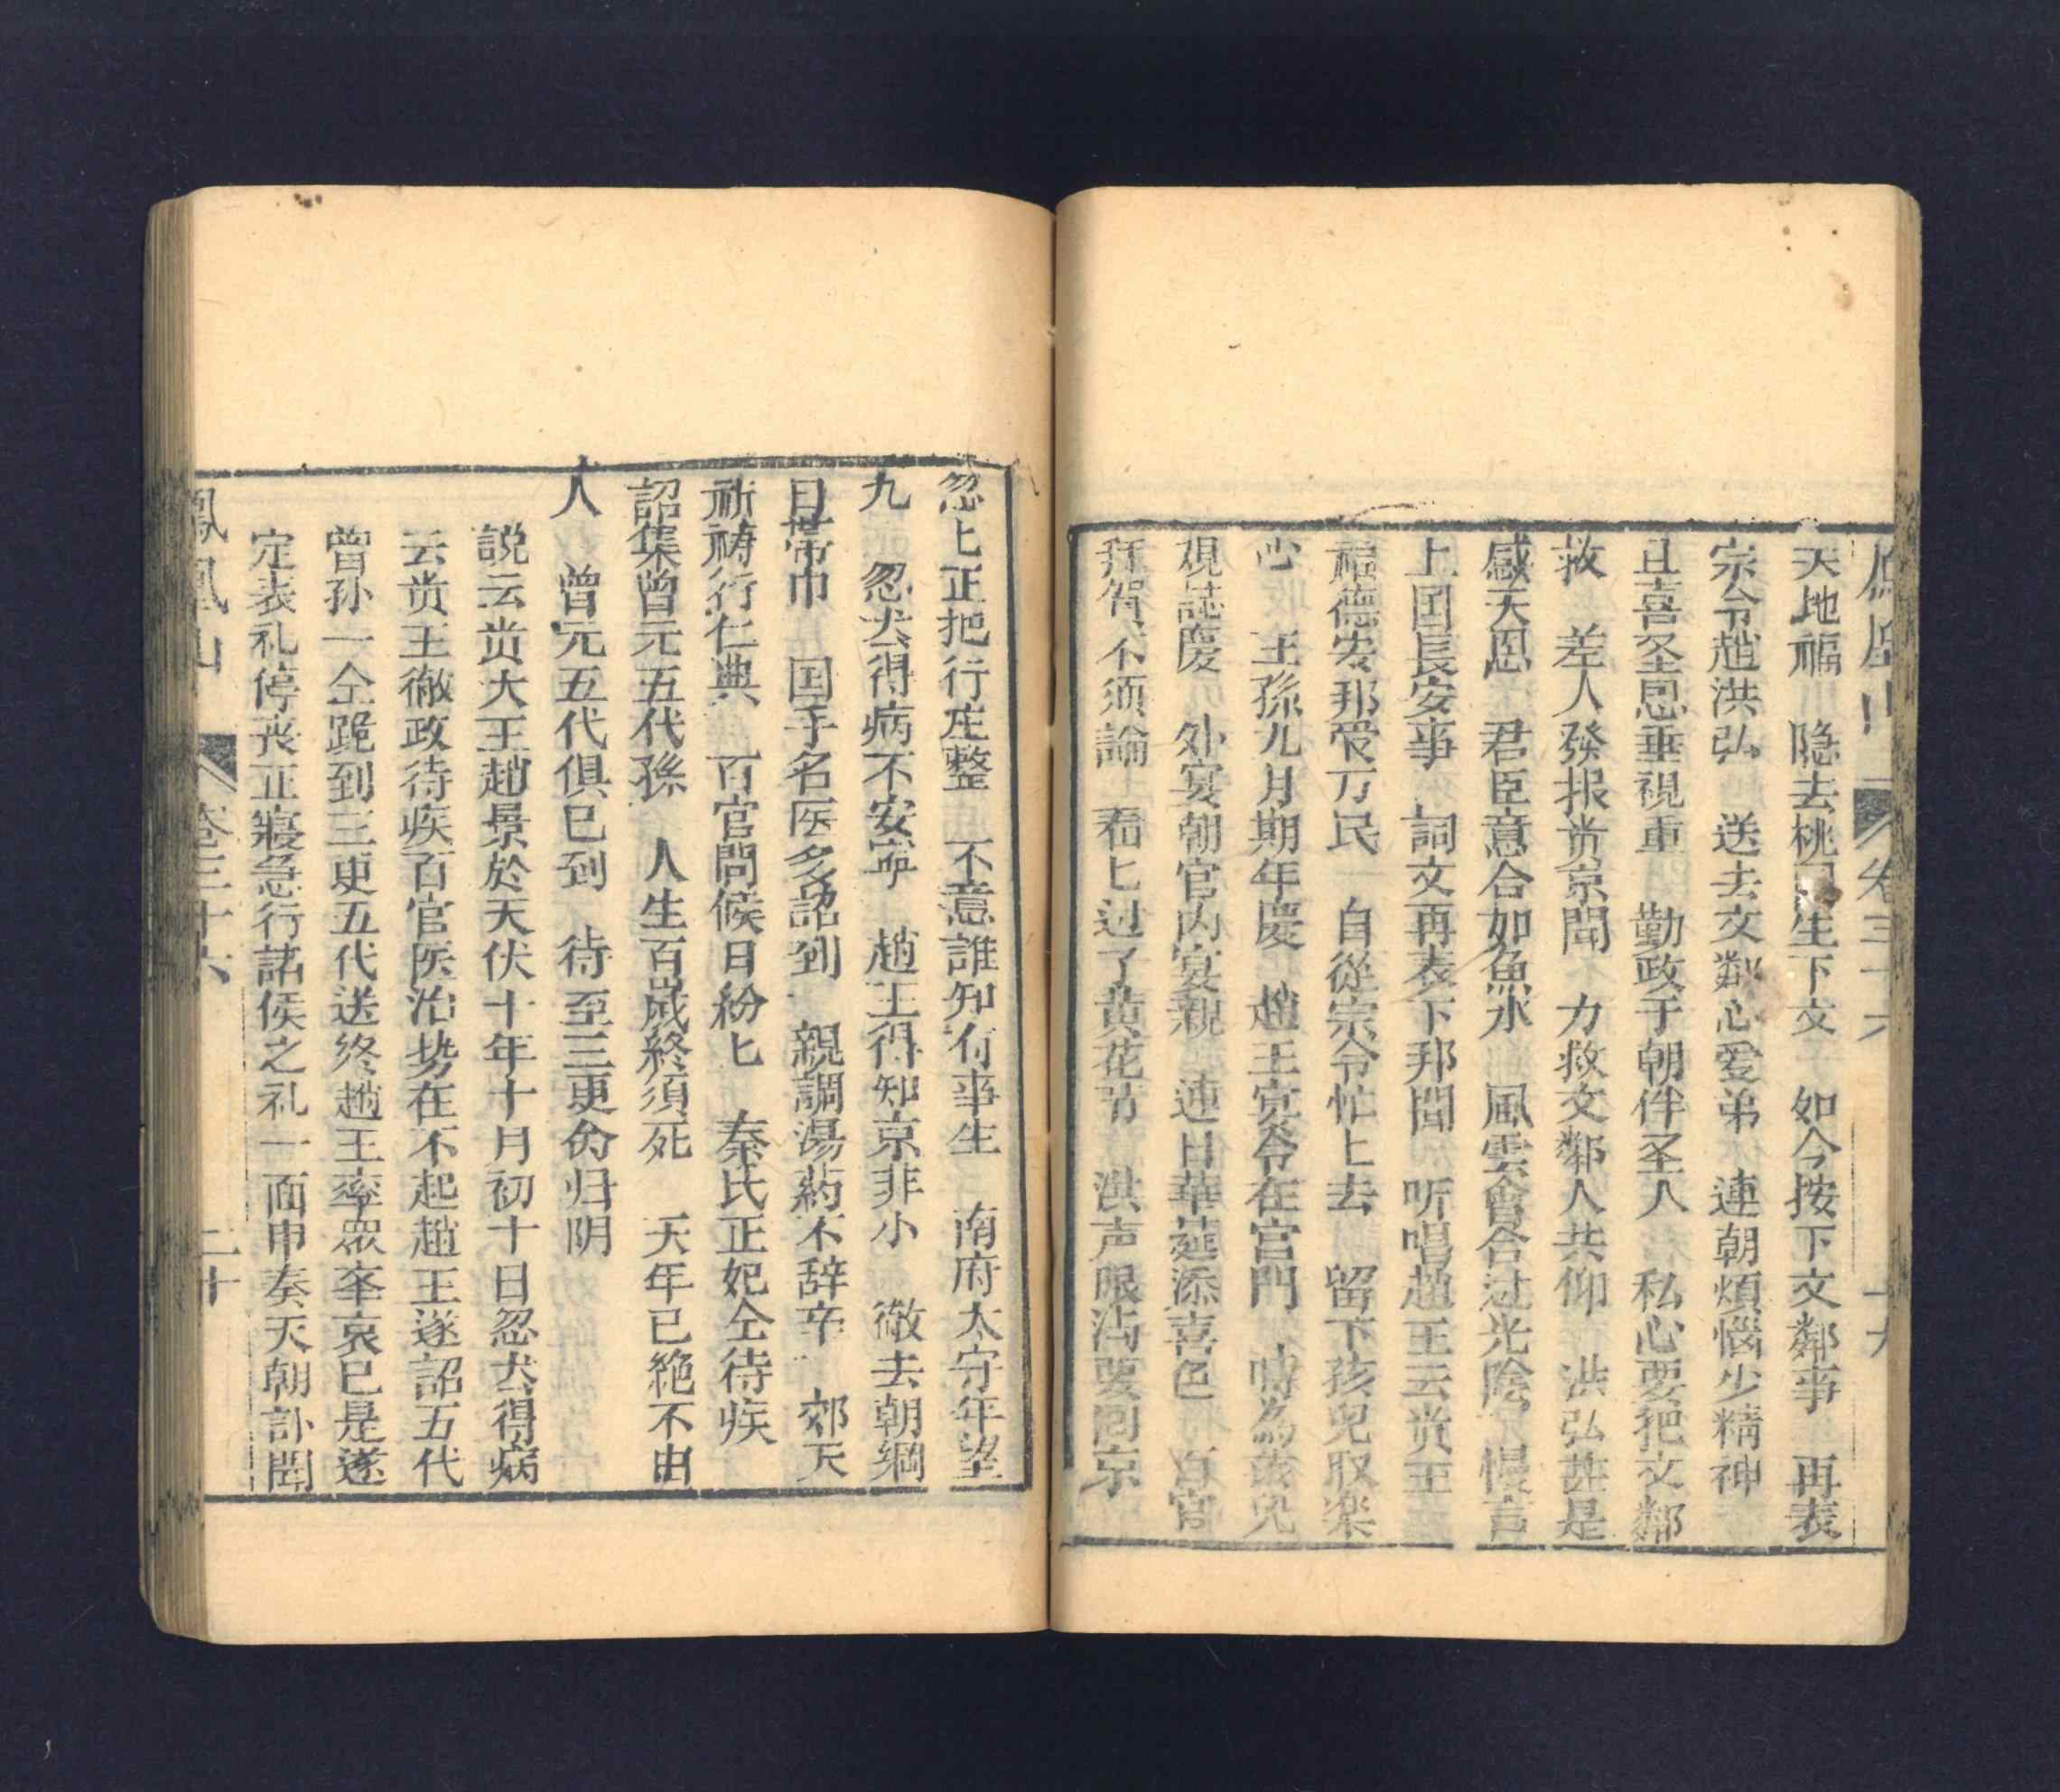 鳳凰山 卷三十六 十九
天地福 隐去桃 生下文 如今按下文鄰事 再表
宗令趙洪弘 送去文鄰心爱弟 連朝煩惱少精神
且喜圣恩垂視重 勤政于朝伴圣人 私心要把文鄰
救 差人發报贵京聞 力救文鄰人共仰 洪弘甚是
感天恩 君臣意合如魚水 風雲會合过光陰 慢言
上国長安事 詞文再表下邦聞 听唱趙王云贵王
福德安邦爱万民 自從宗令怆上去 留下孩兒取楽
心 王孫九月期年慶 趙王宣令在宫門 為孩兒
覌誌慶 外宴朝官内宴親 連日華筵添喜色 百官
拜賀不須論 看匕过了黄花节 洪声眼满要囘京
忽匕正把行庄整 不意誰知有事生 南府太守年望
九 忽然得病不安寜 趙王得知京非小 徹去朝綱
日帶巾 国手名医多詔到 親調湯葯不辞辛 郊天
祈禱行仁典 百官問候日紛匕 秦氏正妃仝待疾
詔集曾元五代孫 人生百歲終須死 天年已絶不由
人 曾元五代俱已到 待至三更命归阴
説云贵大王趙景於天伏十年十月初十日忽犬得病
云贵王徹政待疾百官医治势在不起趙王遂詔五代
曾孙一仝跪到三更五代送終趙王率衆举哀已是遂
定表礼停喪正寢急行諸侯之礼一面申奏天朝訃聞
鳳凰山 卷三十六 二十